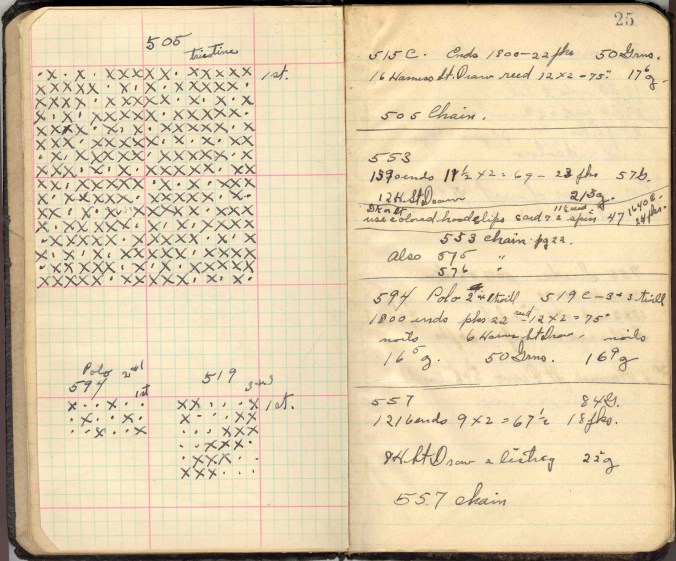 505
tricotine
1st.
Polo 2nd
594
1st
519
3rd
1st.
25
515 C. Ends 1800-22 pks 50 Grns.
16 Harness St. Draw reed 12 x 2 = 75" 17 g.
505 Chain.
553
1390 ends 11 1/2 x 2 = 69 - 23 pks 57 b.
12 H. St Draw 213 g.
use colored hood slips 47 1640 e. 24 pks.
553 chain pg 22.
also 575 "
576 "
594 Polo 2nd twill 519 C - 3 + 3 twill
1800 ends pks 22 reed 12 x 2 = 75"
noils 6 Harness St Draw, noils
16 5 g. 50 Grns. 16 9 g
557 84 G.
1216 ends 9 x 2 = 67 1/2 18 pks.
8 H. St Draw 22 g
557 chain